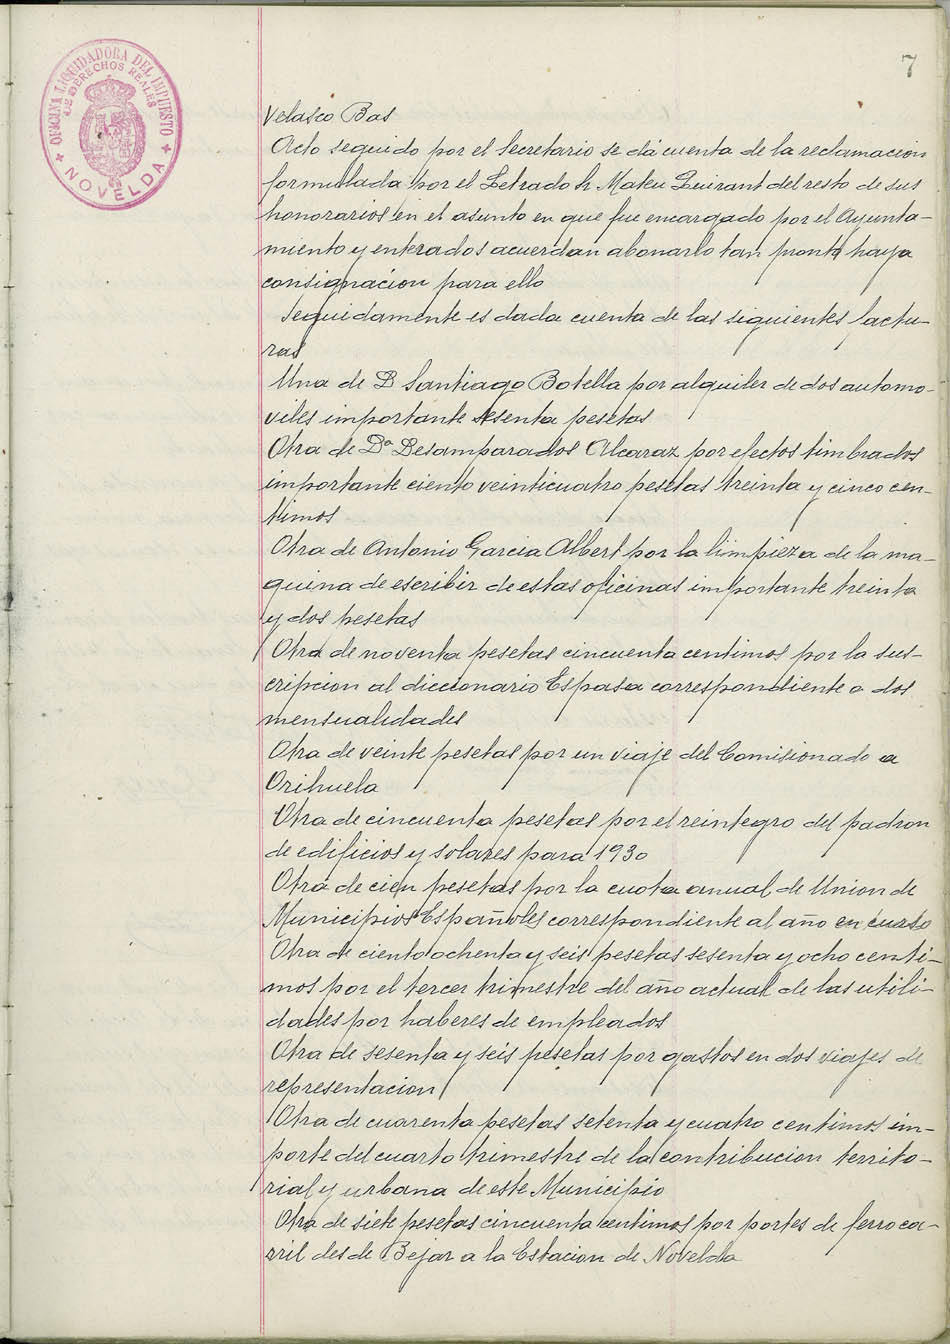 7
OFICINA LIQUIDADORA DEL IMPUESTO
DE DERECHOS REALES
NOVELDA
Velasco Bas
Acto seguido por el Secretario se dá cuenta de la reclamacion
formulada por el Letrado Sr. Mateu del resto de sus
honorarios en el asunto en que fue encargado por el Ayunta-
miento y enterados acuerdan abonarlo tan pronto haya
consignación para ello
Seguidamente es dada cuenta de las siguientes factu-
ras
Una de D Santiago Botella por alquiler de dos automo-
viles importante sesenta pesetas
Otra de Dª Desamparados Alcaraz por efectos timbrados
importante ciento veinticuatro pesetas treinta y cinco cen-
timos
Otra de Antonio Garcia Albert por la limpieza de la ma-
quina de escribir de estas oficinas importante treinta
y dos pesetas
Otra de noventa pesetas cincuenta centimos por la sus-
cripcion al diccionario Espasa correspondiente a dos
mensualidades
Otra de veinte pesetas por un viaje del Comisionado a
Orihuela
Otra de cincuenta pesetas por el reintegro del padron
de edificios y solares para 1930
Otra de cien pesetas por la cuota anual de Union de
Municipios Españoles correspondiente al año en curso
Otra de ciento ochenta y seis pesetas sesenta y ocho centi-
mos por el tercer trimestre del año actual de las utili-
dades por haberes de empleados
Otra de sesenta y seis pesetas por gastos en dos viajes de
representacion
Otra de cuarenta pesetas setenta y cuatro centimos im-
porte del cuarto trimestre de la contribucion territo-
rial y urbana de este Municipio
Otra de siete pesetas cincuenta centimos por portes de ferroca-
rril desde Bejar a la Estacion de Novelda